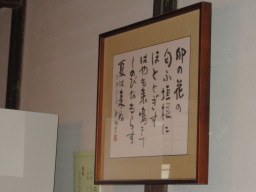 卯の花の
匂ふ垣根に
ほととぎす
はやも来鳴きて
しのびねもらす
夏は来ぬ